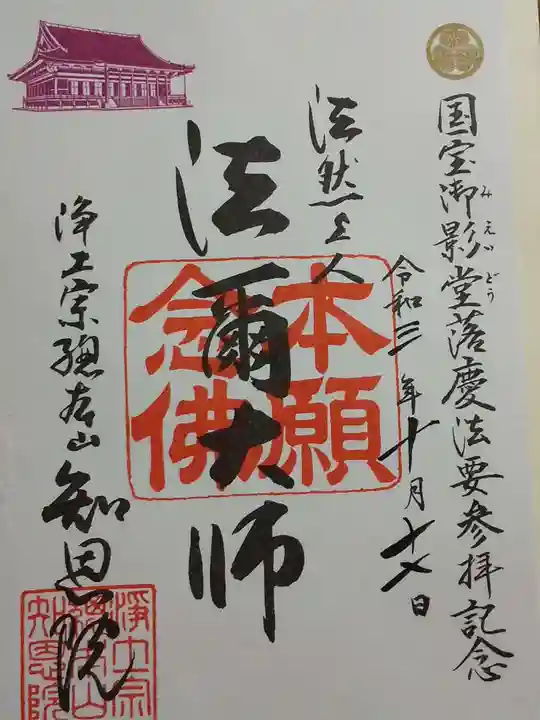 国宝御影堂落慶法要参拝記念
みえいどう
令和三年十月十六日
法然上人
法爾大師
本願
念佛
浄土宗總本山
知恩院
浄土宗
總本山
知恩院